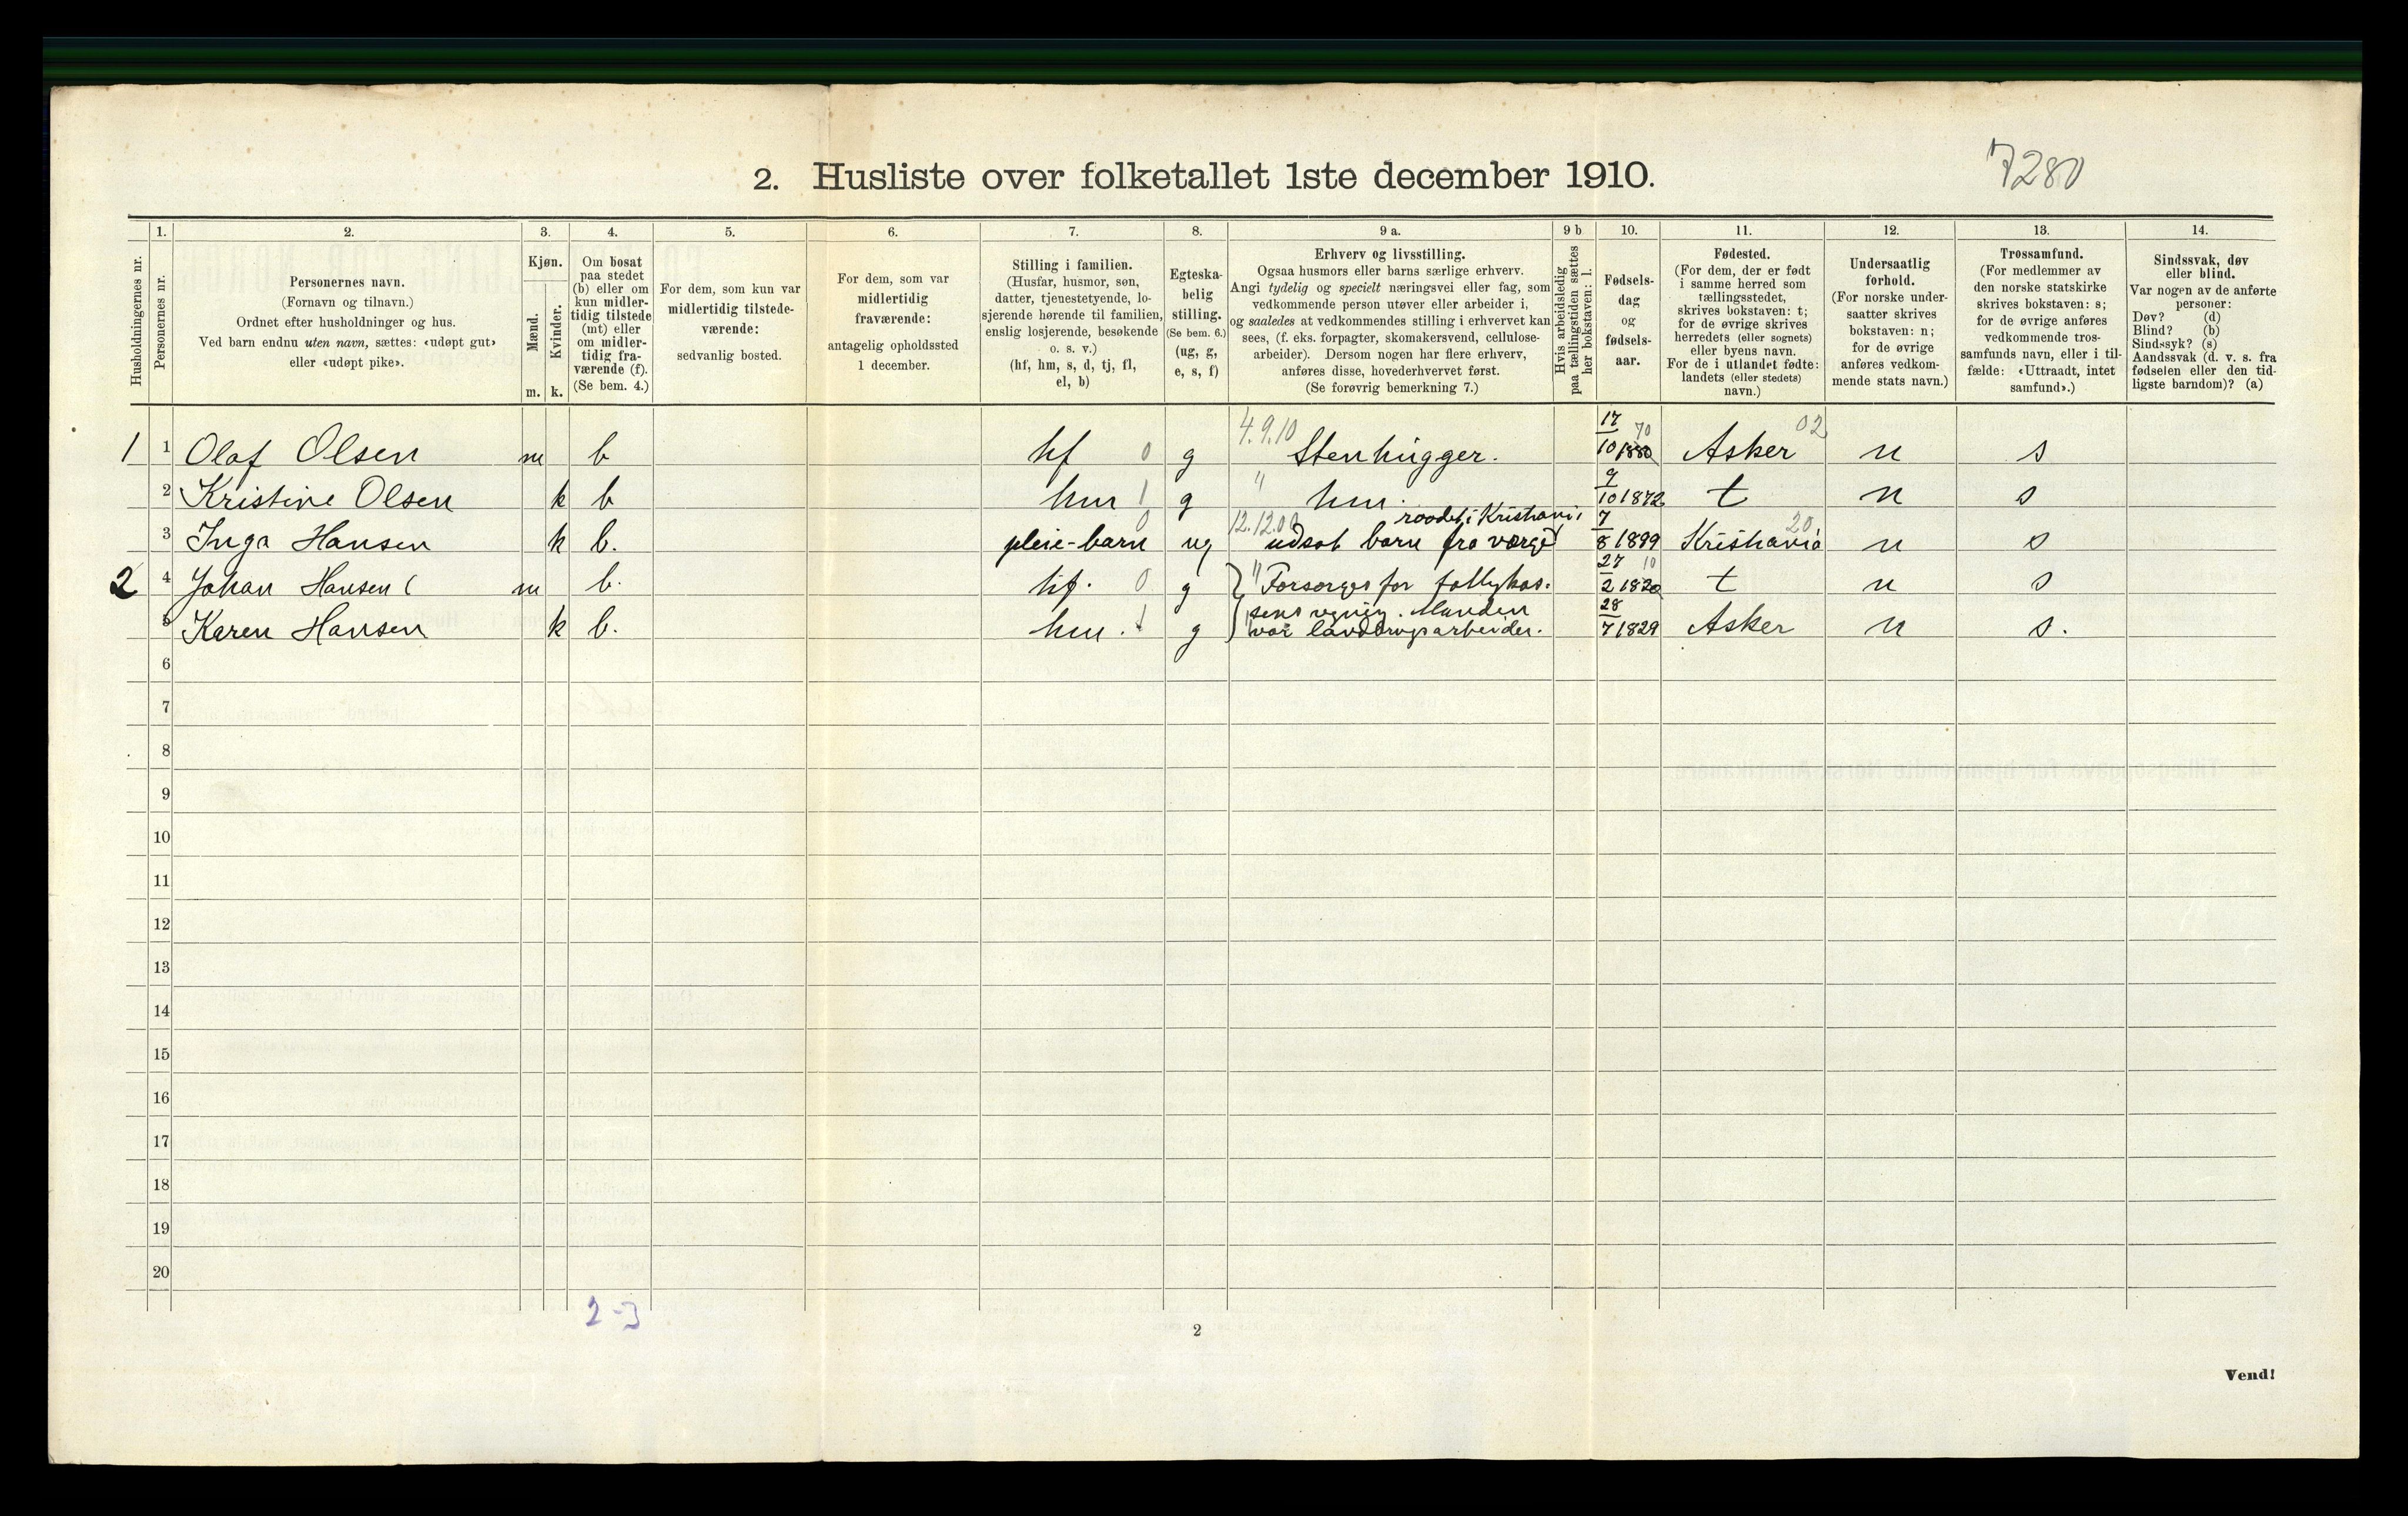 2. Husliste over folketallet 1ste december 1910.
7280
Husholdningernes nr.
1.
Personernes nr.
2.
Personernes navn.
(Fornavn og tilnavn.)
Ordnet efter husholdninger og hus.
Ved barn endnu uten navn, sættes: «udøpt gut»
eller «udøpt pike».
3.
Kjøn.
Mænd.
Kvinder.
m. k.
4.
Om bosat
paa stedet
(b) eller om
kun midler-
tidig tilstede
(mt) eller
om midler-
tidig fra-
værende (f).
(Se bem. 4.)
5.
For dem, som kun var
midlertidig tilstede-
værende:
sedvanlig bosted.
6.
For dem, som var
midlertidig
fraværende:
antagelig opholdssted
1 december.
7.
Stilling i familien.
(Husfar, husmor, søn,
datter, tjenestetyende, lo-
sjerende hørende til familien,
enslig losjerende, besøkende
o. s. v.)
(hf, hm, s, d, tj, fl,
el, b)
8.
Egteska-
belig
stilling.
(Se bem. 6.)
(ug, g,
e, s, f)
9 a.
Erhverv og livsstilling.
Ogsaa husmors eller barns særlige erhverv.
Angi tydelig og specielt næringsvei eller fag, som
vedkommende person utøver eller arbeider i,
og saaledes at vedkommendes stilling i erhvervet kan
sees, (f. eks. forpagter, skomakersvend, cellulose-
arbeider). Dersom nogen har flere erhverv,
anføres disse, hovederhvervet først.
(Se forøvrig bemerkning 7.)
9 b
Hvis arbeidsledig
paa tællingstiden sættes
her bokstaven: l.
10.
Fødsels-
dag
og
fødsels-
aar.
11.
Fødested.
(For dem, der er født
i samme herred som
tællingsstedet,
skrives bokstaven: t;
for de øvrige skrives
herredets (eller sognets)
eller byens navn.
For de i utlandet fødte:
landets (eller stedets)
navn.)
12.
Undersaatlig
forhold.
(For norske under-
saatter skrives
bokstaven: n;
for de øvrige
anføres vedkom-
mende stats navn.)
13.
Trossamfund.
(For medlemmer av
den norske statskirke
skrives bokstaven: s;
for de øvrige anføres
vedkommende tros-
samfunds navn, eller i til-
fælde: «Uttraadt, intet
samfund».)
14.
Sindssvak, døv
eller blind.
Var nogen av de anførte
personer:
Døv? (d)
Blind? (b)
Sindssyk? (s)
Aandssvak (d. v. s. fra
fødselen eller den tid-
ligste barndom)? (a)
1 1 Olaf Olsen m b hf 0 g 4.9.10 Stenhugger. 17/10 1880 70 Asker 02 n s
2 Kristine Olsen k b hm 1 g " hm. 9/10 1872 t n s
3 Inga Hansen k b. pleie-barn 0 ug 12.12.00 udsat barn fra værge roodet i Kristiania 7/8 1899 Kristiania 20 n s
2 4 Johan Hansen m b. hf. 0 g " Forsørges for fattigkas. 27/2 1820 10 t n s
sens regning. Manden
5 Karen Hansen k b. hm. 1 g var landbrugsarbeider. 28/7 1829 Asker n s.
6
7
8
9
10
11
12
13
14
15
16
17
18
19
20
2-3
2
Vend!